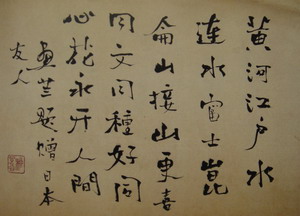 黄河江户水
連水富士崑
崙山接山更喜
同文同種好同
心花永开人間
畫題贈日本
友人